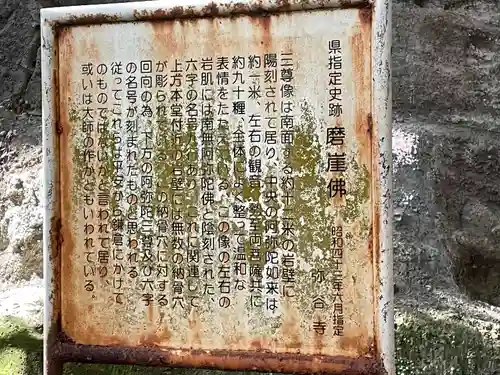 県指定史跡 磨崖佛 昭和四十三年六月指定
弥谷寺
三尊像は南面する約十二米の岩壁に
陽刻されて居り、中央の阿弥陀如来は
約一米、左右の観音、勢至両菩薩共に
約九十糎、全体によく整って温和な
表情をたたえている。この像の左右の
岩肌には南無阿弥陀佛と陰刻された、
六字の名号が九つあり、これに関連して
上方本堂付近の岩壁には無数の納骨穴
が彫られている。この納骨穴に対する
回向の為、下方の阿弥陀三尊及び六字
の名号が刻まれたものと思われる。
従ってこれらは平安から鎌倉にかけて
のものではないかと言われて居り、
或いは大師の作かともいわれている。